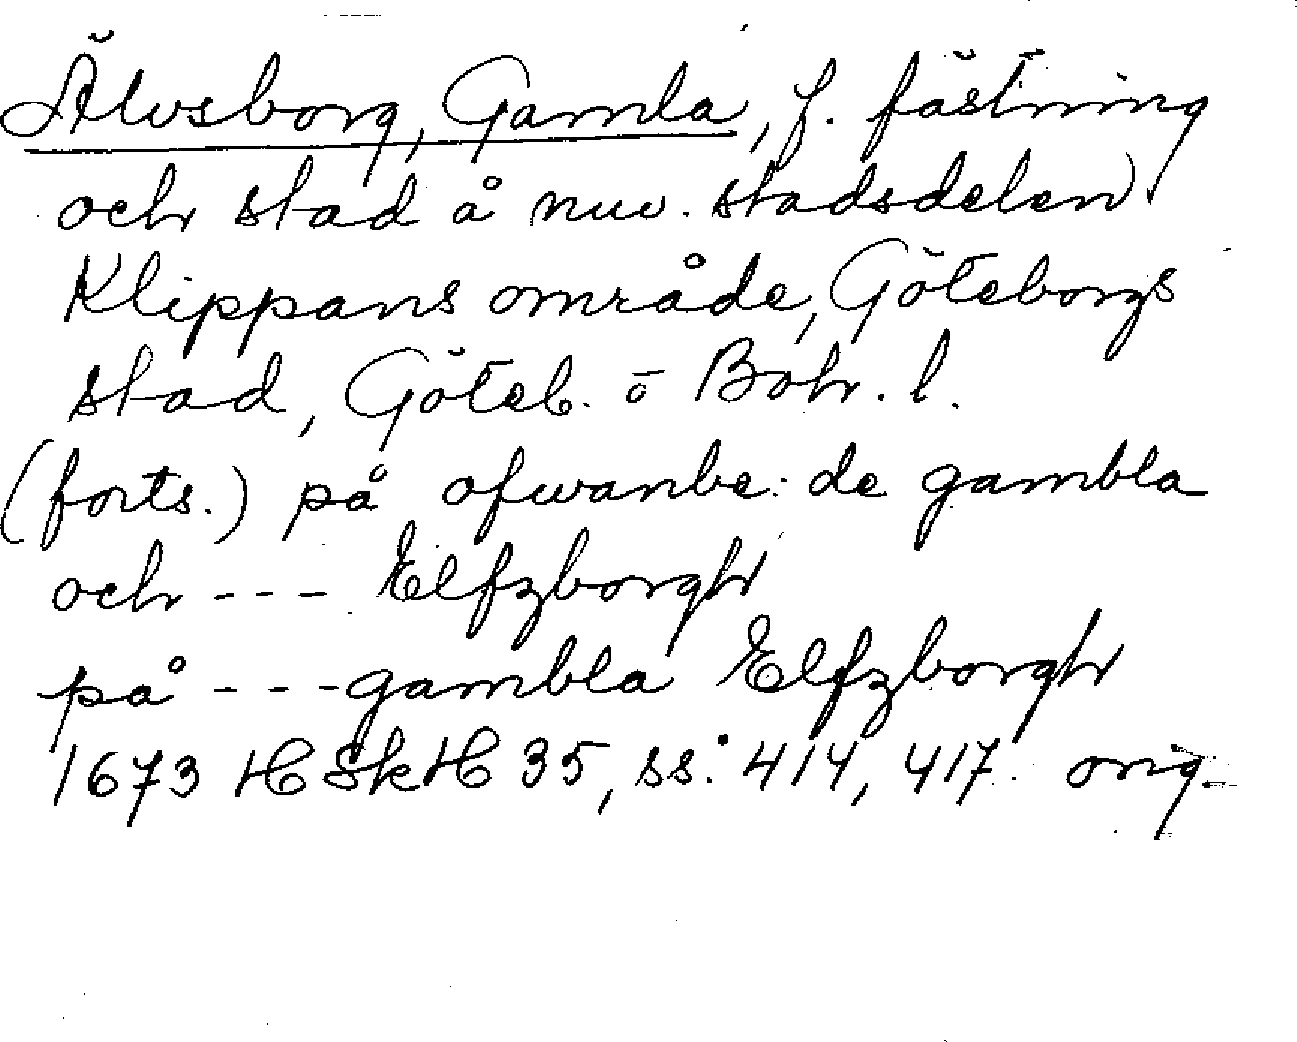 Älvsborg, Gamla, f. fästning
och stad å nuv. stadsdelen
Klippans område, Göteborgs
stad, Göteb. o Boh. l.
(forts.) på ofwanbe: de gambla
och --- Elfzborgh
på --- gambla Elfzborgh
1673 HSkH 35, ss. 414, 417. orig.